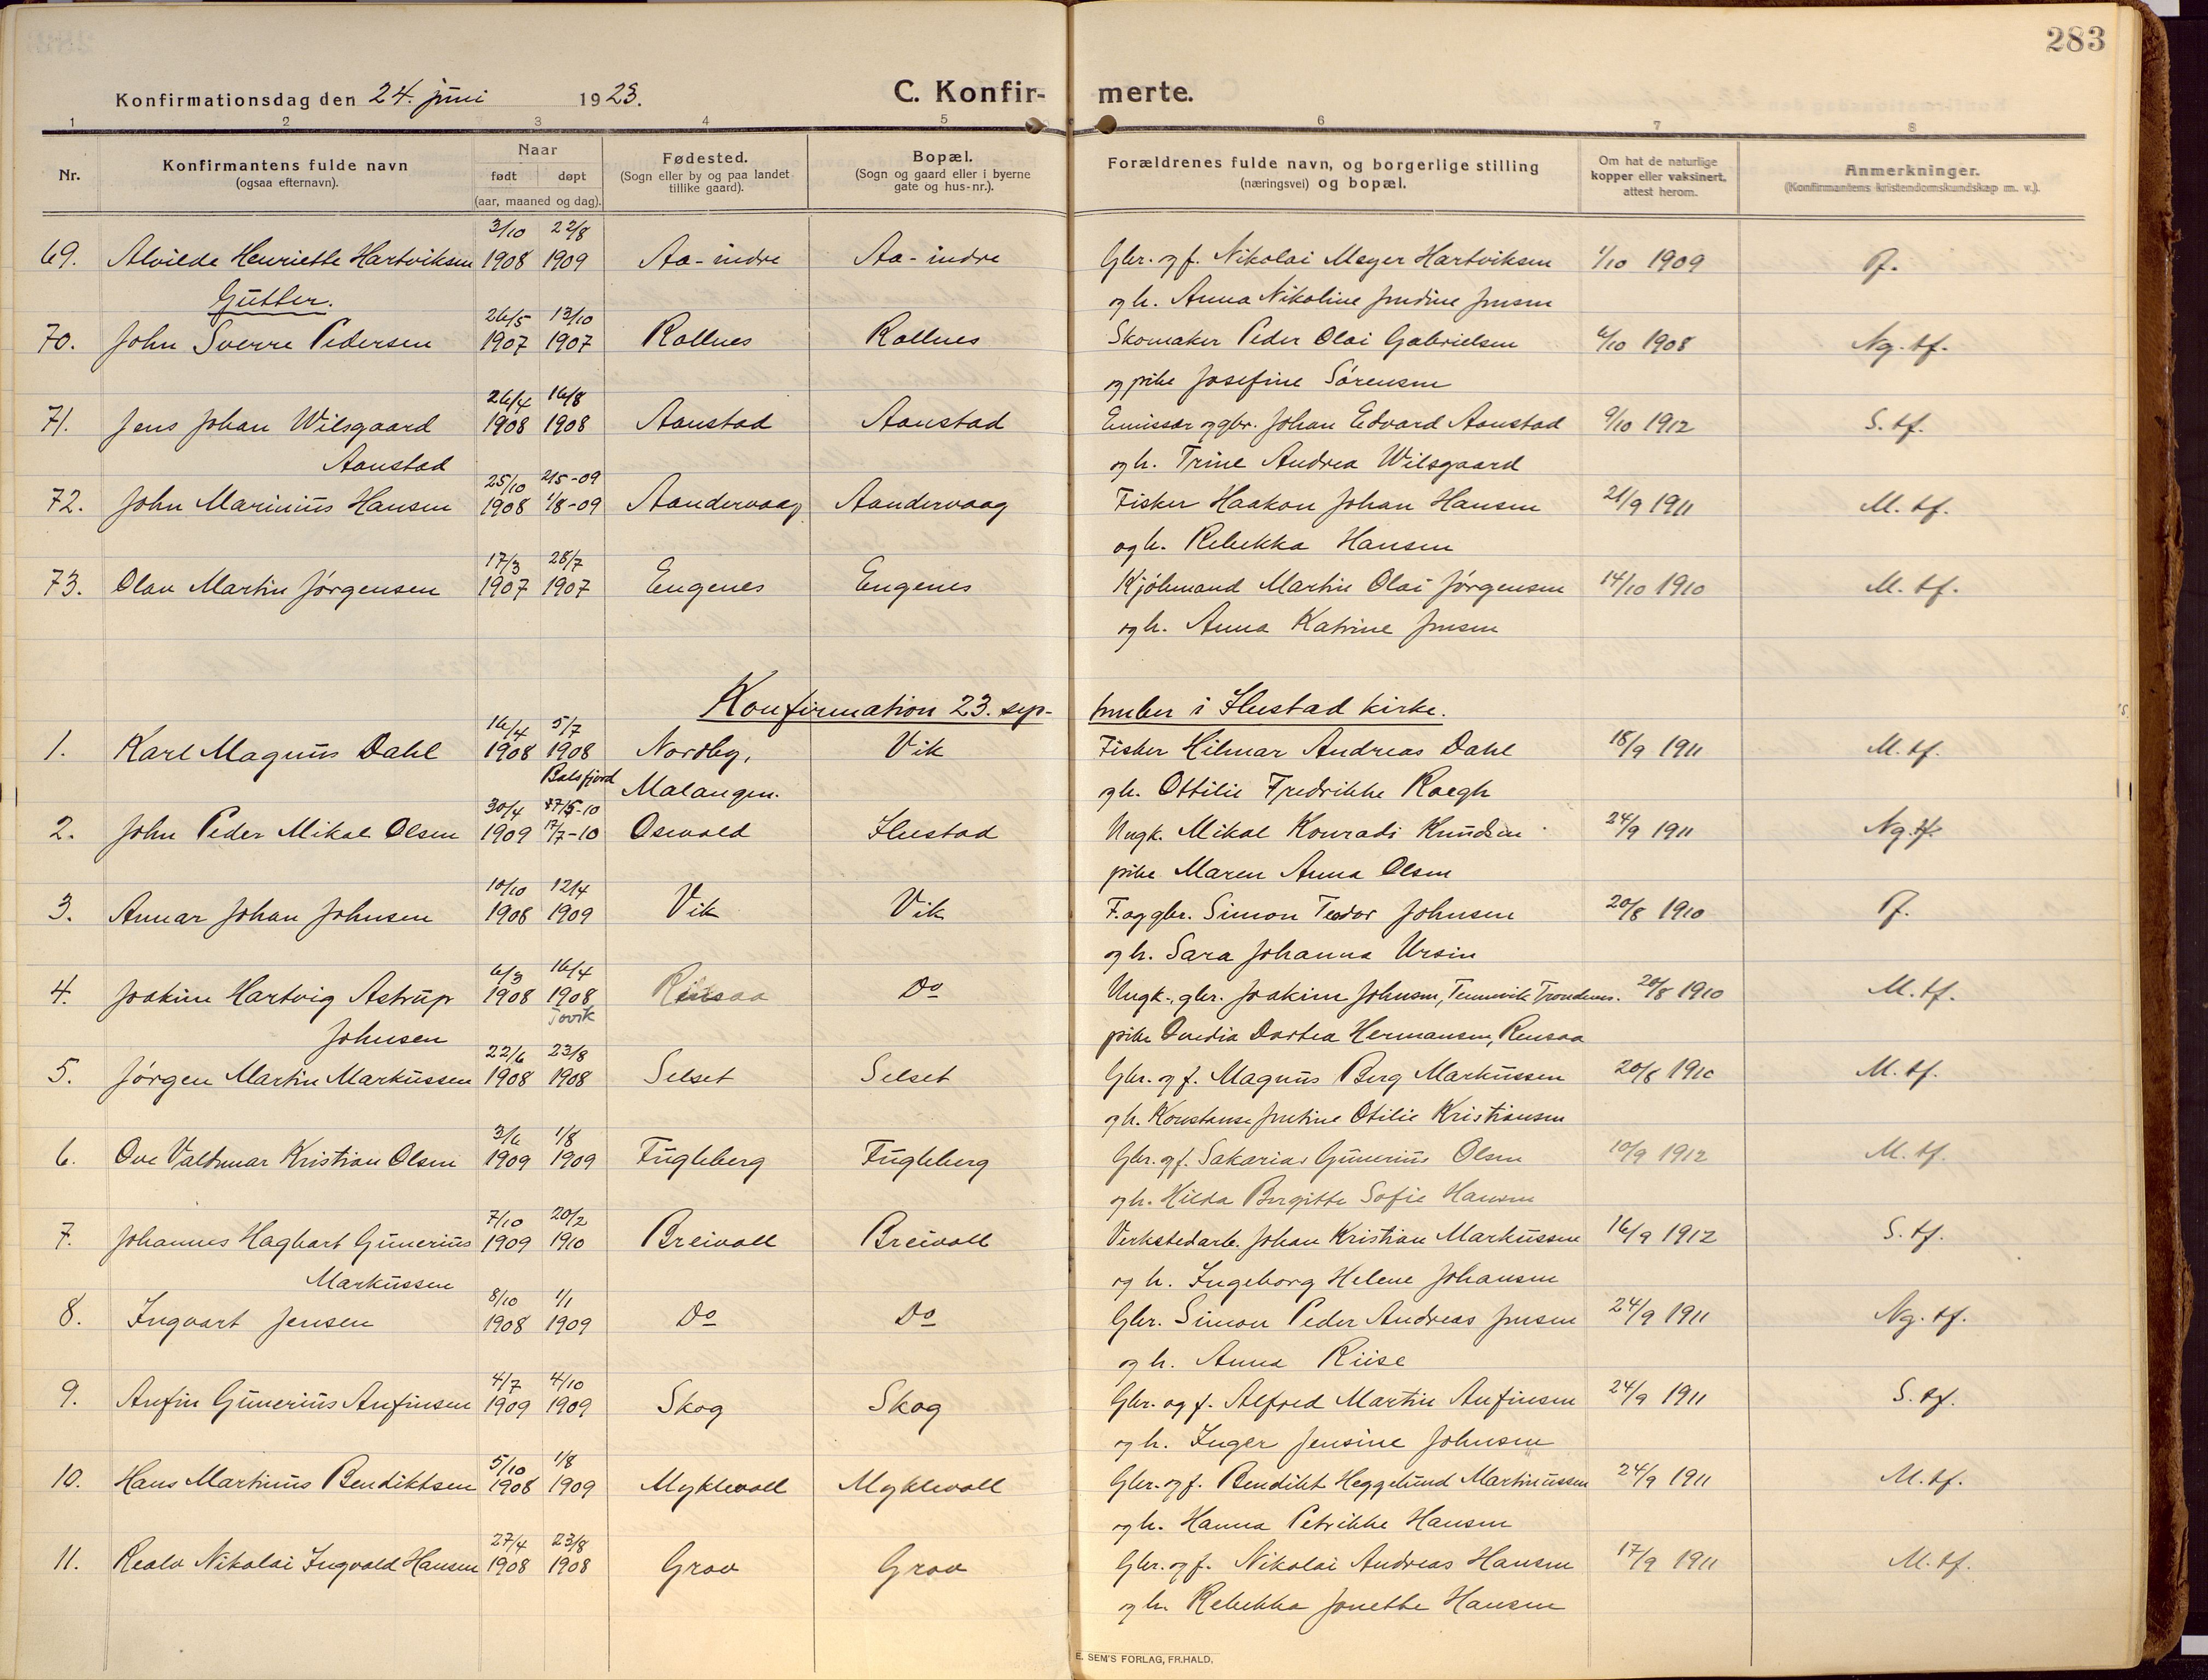 283
Konfirmationsdag den 24. juni 1923. C. Konfir- merte.
1 2 3 4 5 6 7 8
Nr. Konfirmantens fulde navn (ogsaa efternavn). Naar født døpt (aar, maaned og dag). Fødested. (Sogn eller by og paa landet tillike gaard). Bopæl. (Sogn og gaard eller i byerne gate og hus-nr.). Forældrenes fulde navn, og borgerlige stilling (næringsvei) og bopæl. Om hat de naturlige kopper eller vaksinert, attest herom. Anmerkninger. (Konfirmantens kristendomskundskap m. v.).
3/10 22/8
69. Alvilde Henriette Hartviksen 1908 1909 Aa-indre Aa-indre Gbr. og f. Nikolai Meyer Hartviksen 1/10 1909
Gutter. og h. Anna Nikoline Jensen
26/5 13/10
70. John Sverre Pedersen 1907 1907 Rollnes Rollnes Skomaker Peder Olai Gabrielsen 6/10 1908 Ng. tf.
og pike Josefine Sørensen
26/4 16/8
71. Jens Johan Wilsgaard 1908 1908 Aanstad Aanstad Emissær og gbr. Johan Edvard Aanstad 9/10 1912 S. tf.
Aanstad og h. Trine Andrea Wilsgaard
25/10 2/5-09
72. John Marinius Hansen 1908 1/8-09 Aandervaag Aandervaag Fisker Haakon Johan Hansen 21/9 1911 M. tf.
og h. Rebekka Hansen
17/3 28/7
73. Olav Martin Jørgensen 1907 1907 Engenes Engenes Kjøbmand Martin Olai Jørgensen 14/10 1910 M. tf.
og h. Anna Katrine Jensen
Konfirmation 23. sep- tember i Ibestad kirke.
16/4 5/7
1. Karl Magnus Dahl 1908 1908 Nordby, Vik Fisker Hilmar Andreas Dahl 18/9 1911 M. tf.
Balsfjord Malangen. og h. Ottilie Fredrikke Roegh
30/4 17/5-10
2. John Peder Mikal Olsen 1909 17/7-10 Osvold Ibestad Ungk. Mikal Konradi Knudsen 24/9 1911 Ng. tf.
pike Maren Anna Olsen
10/10 12/4
3. Annar Johan Johnsen 1908 1909 Vik Vik F. og gbr. Simon Teodor Johnsen 20/8 1910
og h. Sara Johanna Ursin
6/3 16/4
4. Joakim Hartvig Astrup 1908 1908 Rensaa Do Ungk., gbr. Joakim Johnsen, Tennevik Trondenes. 20/8 1910 M. tf.
Johnsen Tovik pike Ovedia Dortea Hermansen, Rensaa
22/6 23/8
5. Jørgen Martin Markussen 1908 1908 Selset Selset Gbr. og f. Magnus Berg Markussen 20/8 1910 M. tf.
og h. Konstanse Jentine Otilie Kristiansen
3/6 1/8
6. Ove Valdemar Kristian Olsen 1909 1909 Fugleberg Fugleberg Gbr. og f. Sakarias Gunerius Olsen 10/9 1912 M. tf.
og h. Hilda Birgitte Sofie Hansen
7/10 20/2
7. Johannes Hagbart Gunerius 1909 1910 Breivoll Breivoll Verkstedarb. Johan Kristian Markussen 16/9 1912 S. tf.
Markussen og h. Ingeborg Helene Johansen
8/10 1/1
8. Ingvart Jensen 1908 1909 Do Do Gbr. Simon Peder Andreas Jensen 24/9 1911 Ng. tf.
og h. Anna Riise
4/7 4/10
9. Anfin Gunerius Anfinsen 1909 1909 Skog Skog Gbr. og f. Alfred Martin Anfinsen 24/9 1911 S. tf.
og h. Inger Jensine Johnsen
5/10 1/8
10. Hans Martinus Bendiktsen 1908 1909 Myklevoll Myklevoll Gbr. og f. Bendikt Heggelund Martinussen 24/9 1911 M. tf.
og h. Hanna Petrikke Hansen
27/4 23/8
11. Realv Nikolai Ingvald Hansen 1908 1908 Grov Grov Gbr. og f. Nikolai Andreas Hansen 17/9 1911 M. tf.
og h. Rebekka Jonette Hansen
E. SEM'S FORLAG, FR.HALD.